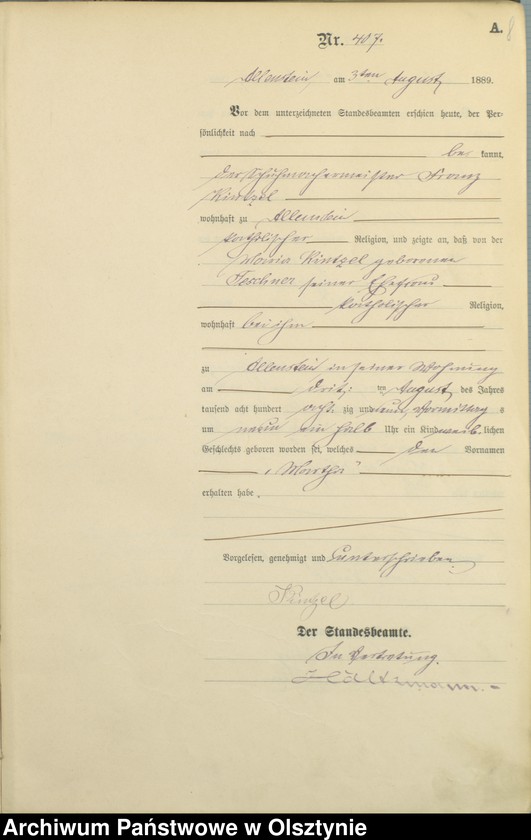 A.
Nr. 407.
Allenstein, am 3ten August 1889.
Vor dem unterzeichneten Standesbeamten erschien heute, der Per-
sönlichkeit nach
be kannt,
der Schuhmachermeister Franz
Kintzel
wohnhaft zu Allenstein
katholischer Religion, und zeigte an, daß von der
Maria Kintzel geborenen
Teschner seiner Ehefrau
katholischer Religion,
wohnhaft bei ihm
zu Allenstein in seiner Wohnung
am ten August des Jahres
tausend acht hundert acht zig und neun Vormittag s
um neun ein halb Uhr ein Kind weib lichen
Geschlechts geboren worden sei, welches den Vornamen
„Martha“
erhalten habe.
Vorgelesen, genehmigt und unterschrieben.
Kintzel
Der Standesbeamte.
In Vertretung.
Archiwum Państwowe w Olsztynie